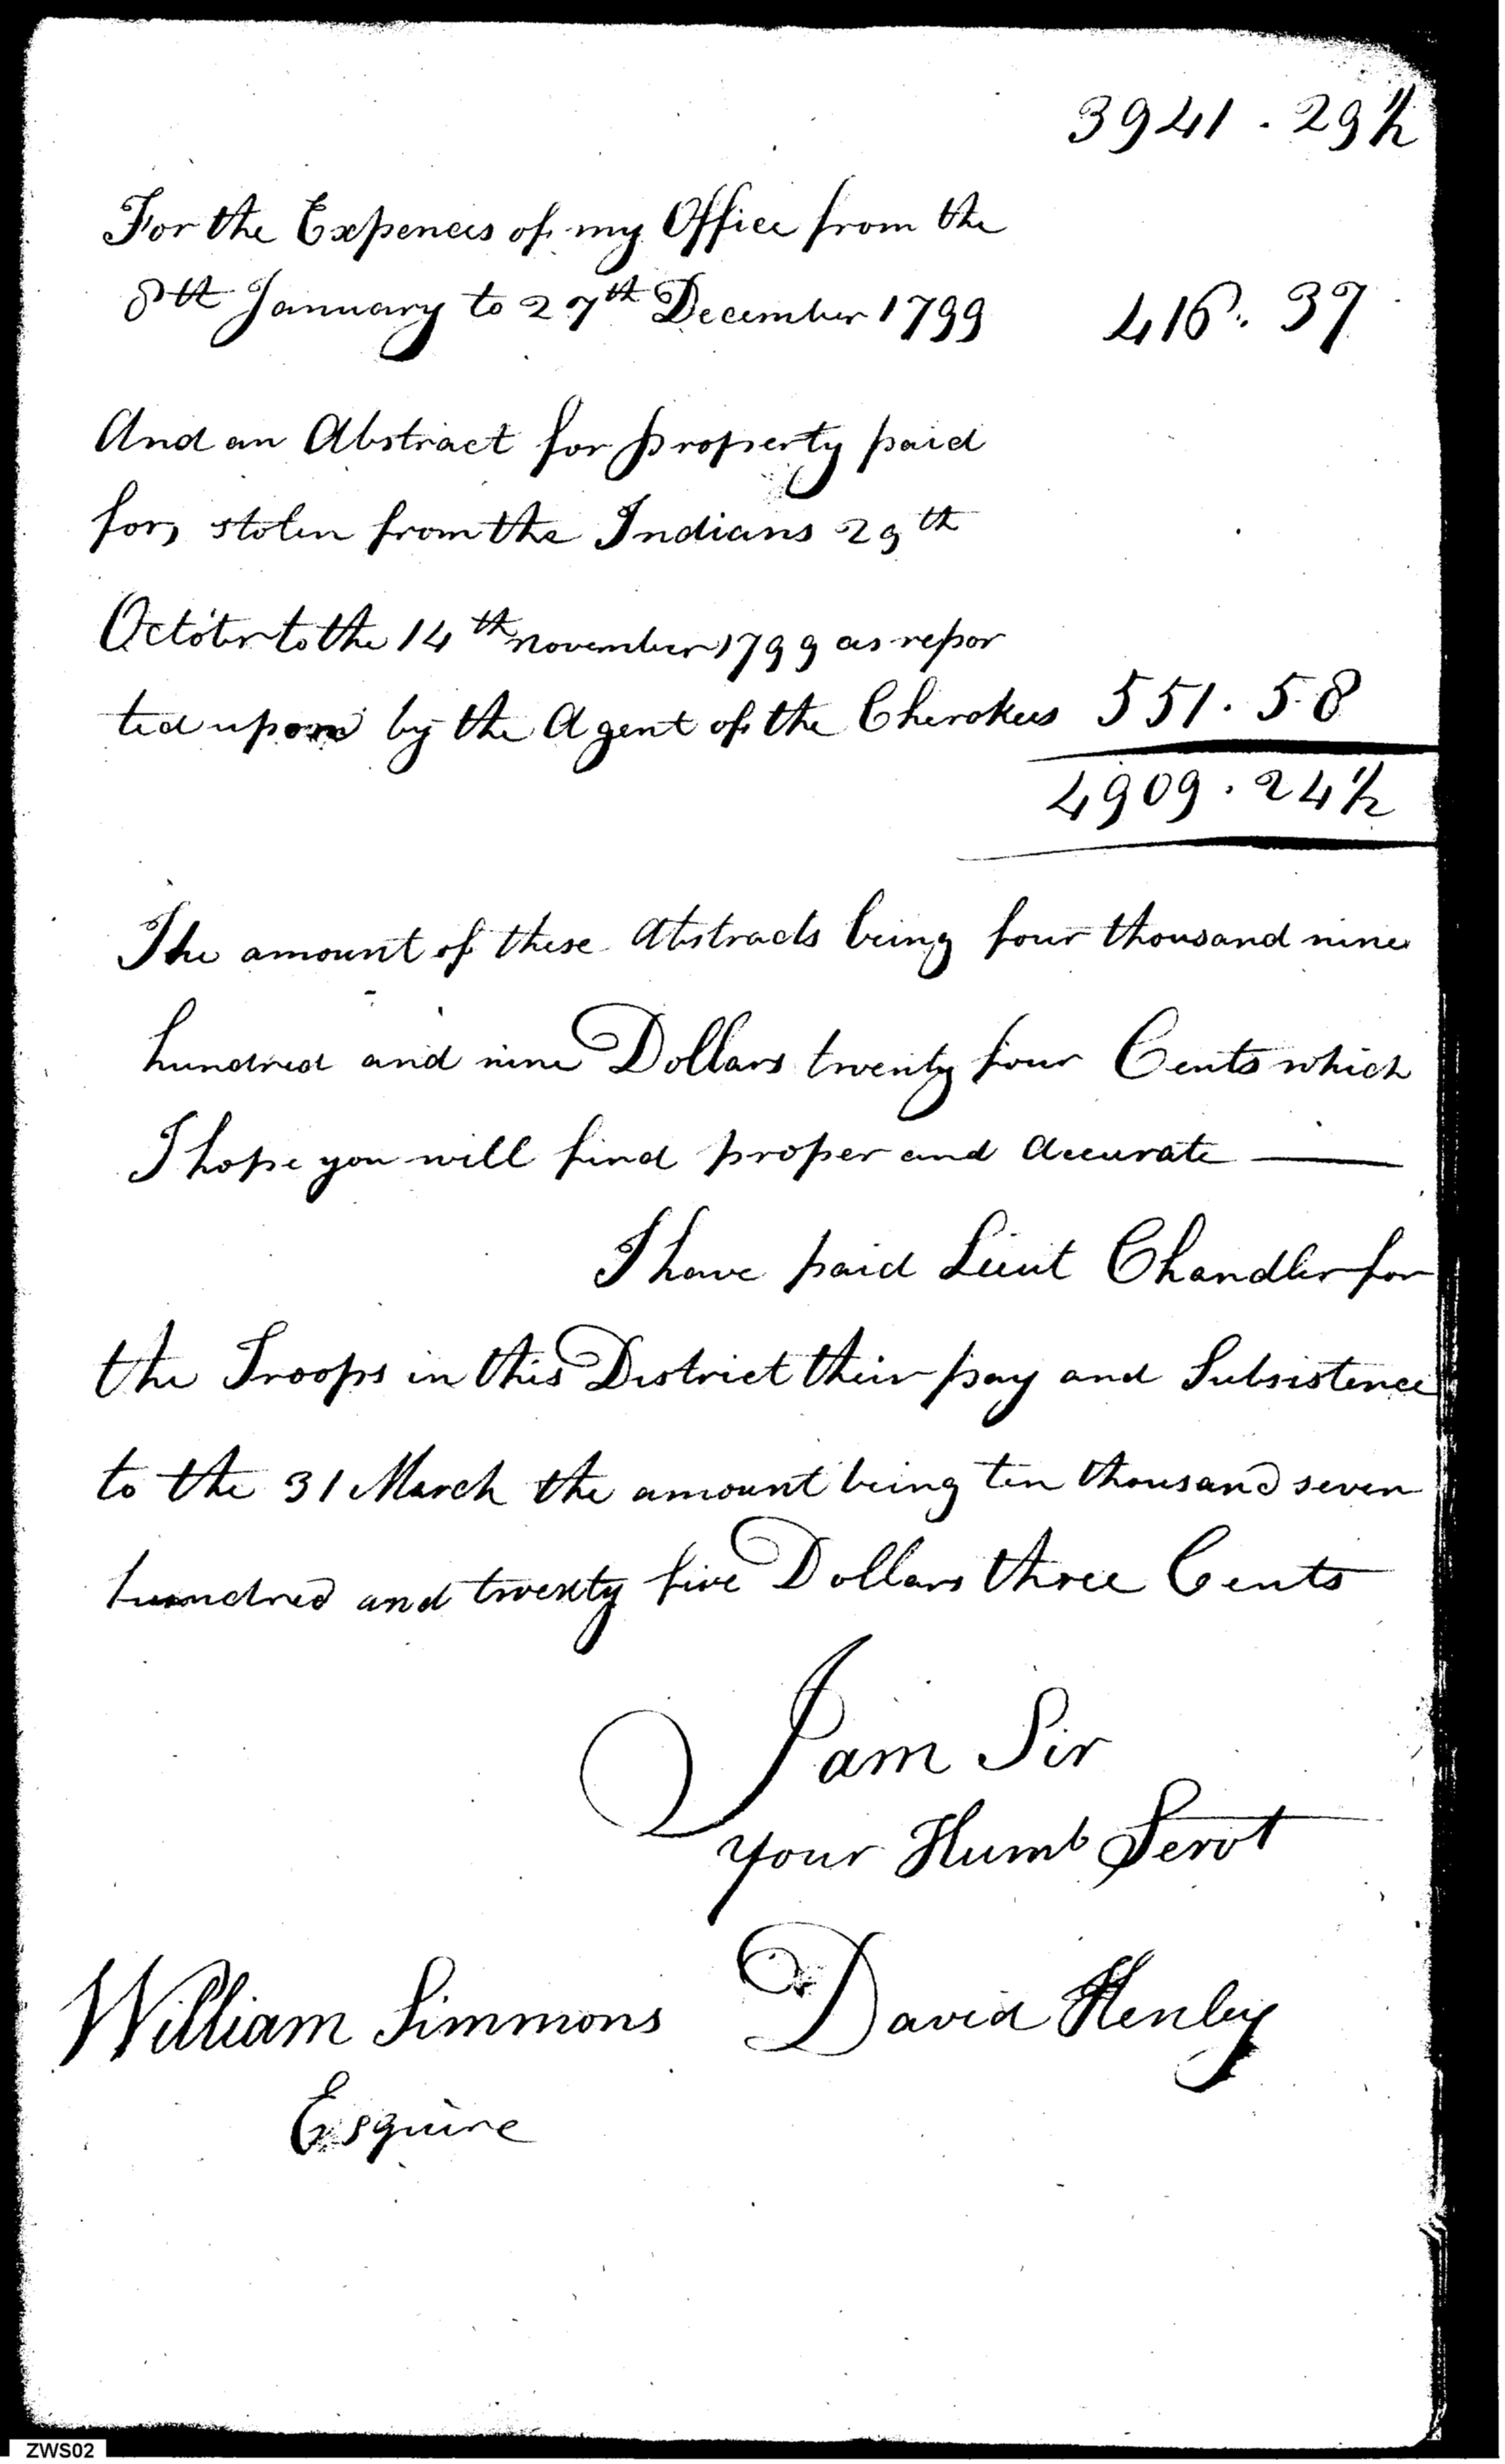 3941. 29½
For the Expences of my Office from the
8th January to 27th December 1799 416. 37
And an Abstract for property paid
for, stolen from the Indians 29th
Octobr to the 14th november 1799 as repor
ted upon by the Agent of the Cherokees 551. 58
4909. 24½
The amount of these Abstracts being four thousand nine
hundred and nine Dollars twenty four Cents which
I hope you will find proper and accurate ——
I have paid Lieut Chandler for
the Troops in this District their pay and Subsistence
to the 31 March the amount being ten thousand seven
hundred and twenty five Dollars three Cents
I am Sir
your Humb Servt
William Simmons David Henley
Esquire
ZWS02